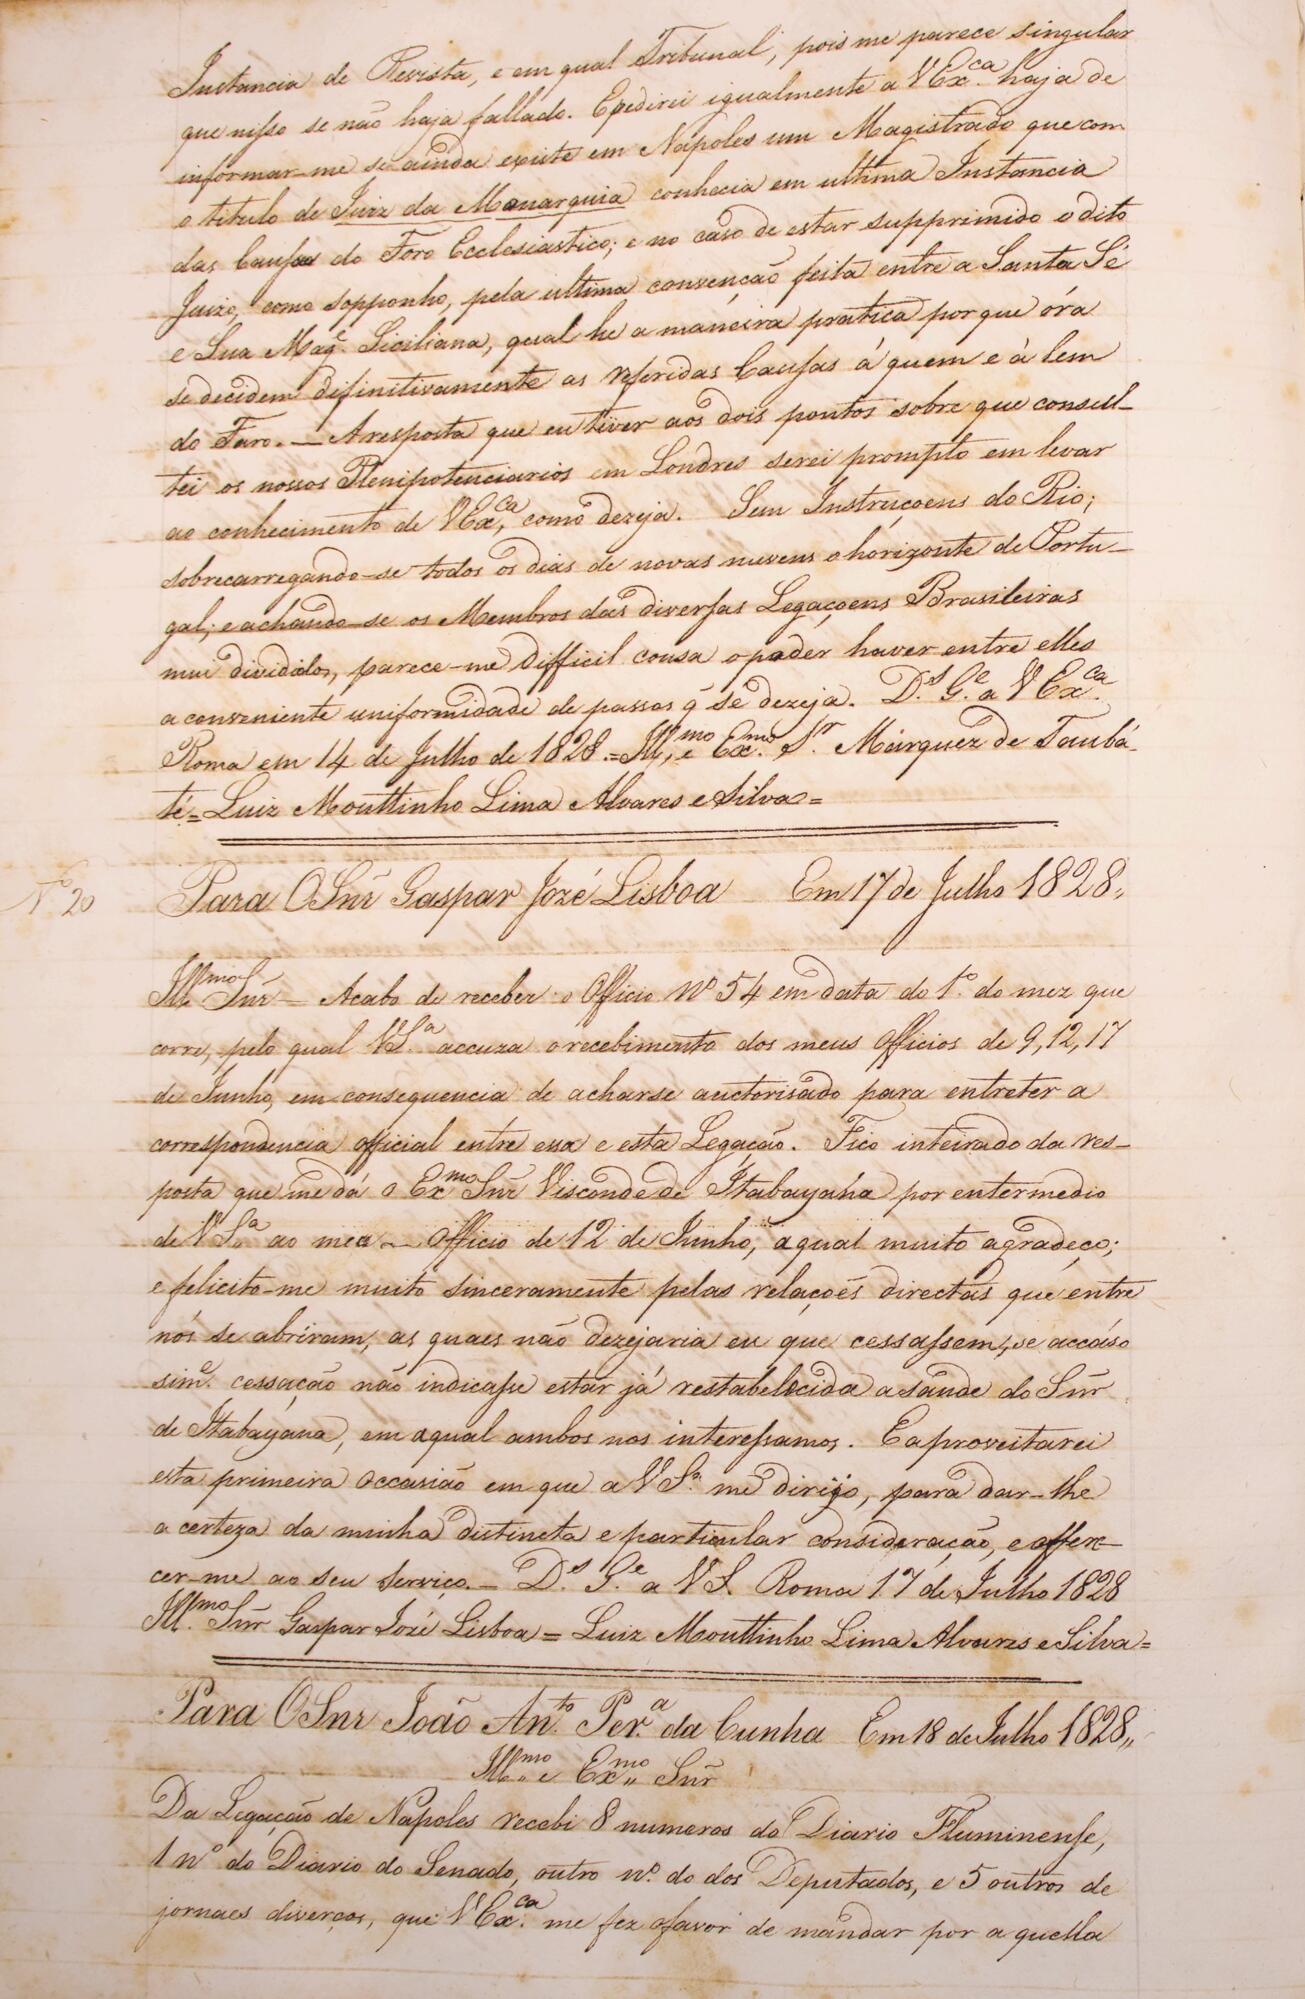 Instancia de Revista, e em qual Tribunal, pois me parece singular
que nisso se não haja fallado. Epedirei igualmente a VExca. haja de
informar-me se ainda existe em Napoles um Magistrado que com
o titulo de Juiz da Monarquia conhecia em ultima Instancia
das Causas do Foro Ecclesiastico; e no caso de estar supprimido o dito
Juizo, como sopponho, pela ultima convenção feita entre a Santa Sé
e Sua Mage. Siciliana, qual he a maneira pratica porque óra
se decidem difinitivamente as referidas Causas á quem e à lem
do Faro. — A resposta que eu tiver aos dois pontos sobre que consul-
tei os nossos Plenipotenciarios em Londres serei prompto em levar
ao conhecimento de VExca, como dezeja. Sem Instruçoens do Rio;
sobrecarregando-se todos os dias de novas nuvens o horizonte de Portu-
gal; e achando-se os Membros das diversas Legaçoens Brasileiras
mui divididos, parece-me difficil cousa o poder haver entre elles
a conveniente uniformidade de passos q̃ se dezeja. Ds. Ge. a VExca.
Roma em 14 de Julho de 1828.=Illmo, e Exmo. Sr. Marquez de Taubá-
té=Luiz Mouttinho Lima Alvares e Silva=
No 20
Para O Snr̃ Gaspar Jozé Lisboa Em 17 de Julho 1828.
Illmo Snr̃ — Acabo de receber o Officio No 54 em data do 1o. do mez que
corre, pelo qual VSa. accuza o recebimento dos meus Officios de 9, 12, 17
de Junho, em consequencia de acharse auctorisado para entreter a
correspondencia official entre essa e esta Legação. Fico inteirado da res-
posta que me dá o Exmo Snr̃ Visconde de Itabayána por entermedio
de VSa. ao meu — Officio de 12 de Junho, a qual muito agradeço;
e felicito-me muito sinceramente pelas relações directas que entre
nós se abriram, as quaes não dezejaria eu que cessassem, se accáso
sime. cessação não indicasse estar já restabelecida a saúde do Snr̃
de Itabayana, em a qual ambos nos interessamos. E aproveitarei
esta primeira occasião em que a VSa. me dirijo, para dar-lhe
a certeza da minha distincta e particular consideração, e offere-
cer-me ao seu serviço. — Ds. Ge. a VS. Roma 17 de Julho 1828
Illmo. Snr̃ Gaspar Jozé Lisboa = Luiz Mouttinho Lima Alvares e Silva=
Para O Snr João Anto. Pera. da Cunha Em 18 de Julho 1828,,
Illmo. e Exmo. Snr̃
Da Legação de Napoles recebi 8 numeros do Diario Fluminense,
1 no. do Diario do Senado, outro no. do dos Deputados, e 5 outros de
jornaes diverços, que VExca. me fez o favor de mandar por a quella